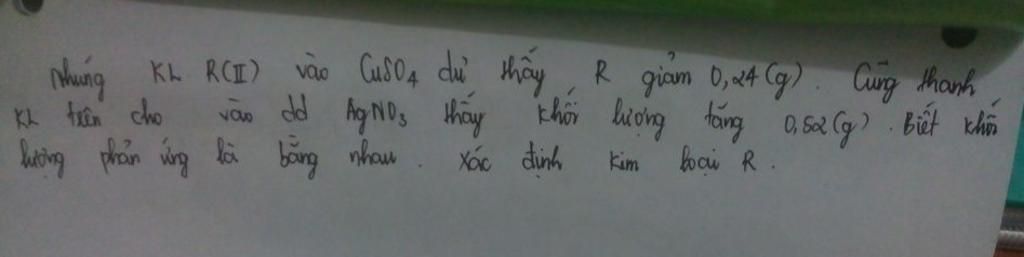 Nhúng KL R(II) vào CuSO4 dư thấy R giảm 0,24(g). Cũng thanh
KL trên cho vào dd AgNO3 thấy khối lượng tăng 0,52(g). Biết khối
lượng phản ứng là bằng nhau. Xác định kim loại R.